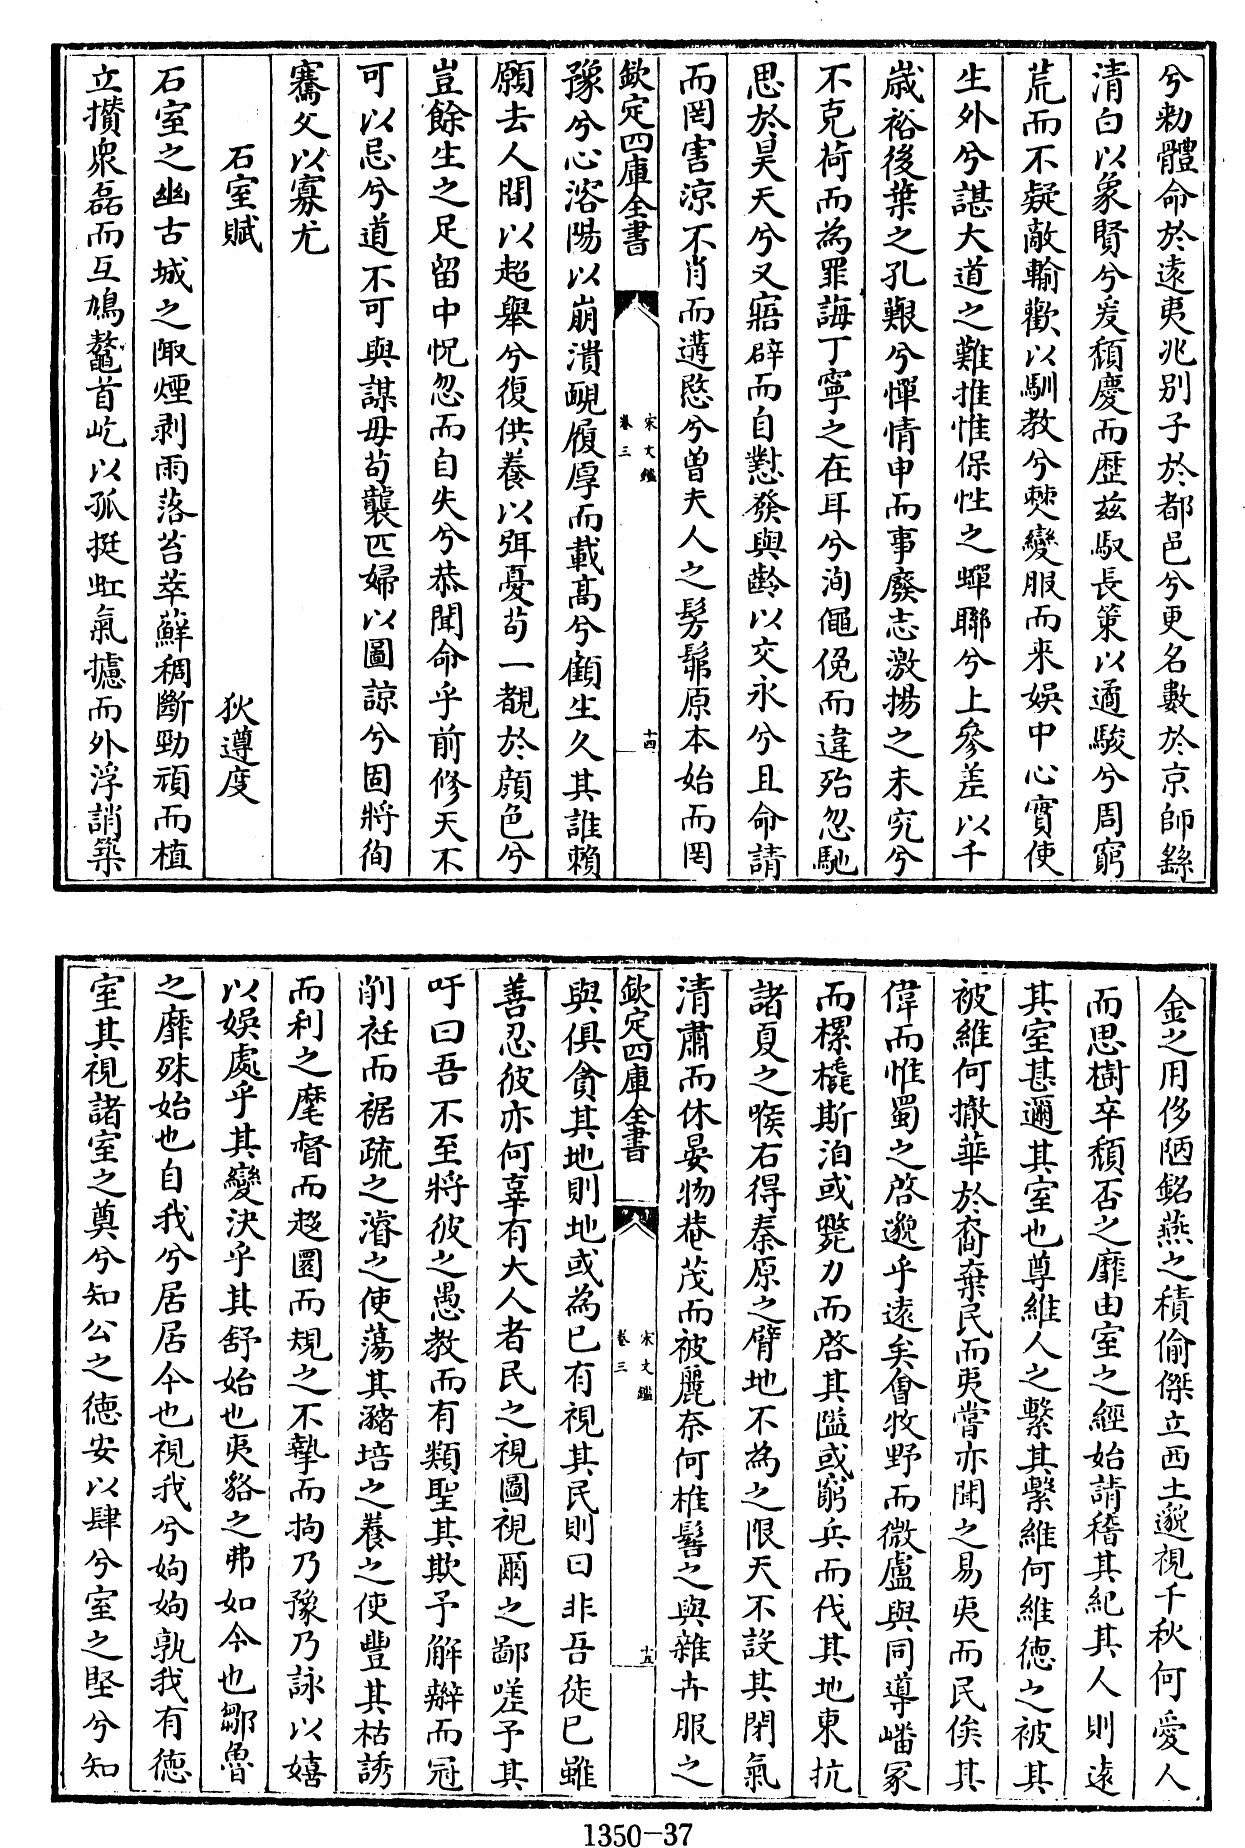 兮勅體命於遠夷兆别子於都邑兮更名數於京師繇
清白以象賢兮爰頽慶而歴兹馭長䇿以遹駿兮周窮
荒而不疑敵輸歡以馴教兮僰變服而來娱中心實使
生外兮諶大道之難推惟保性之蟬聯兮上參差以千
歳裕後葉之孔艱兮憚情申而事廢志激揚之未究兮
不克荷而為罪誨丁寧之在耳兮洵僶俛而違殆忽馳
思於昊天兮又寤辟而自懟發與齡以交永兮且命請
而罔害涼不肖而遘愍兮曽夫人之髣髴原本始而罔
欽定四庫全書
宋文鑑
卷三
十四
豫兮心溶陽以崩潰覥履厚而載髙兮顧生久其誰賴
願去人間以超舉兮復供養以弭憂茍一覩於顔色兮
豈餘生之足留中怳忽而自失兮恭聞命乎前修天不
可以忌兮道不可與謀毋茍襲匹婦以圖諒兮固將徇
騫父以寡尤
石室賦
狄遵度
石室之幽古城之陬煙剥雨落苔萃蘚稠斷勁頑而植
立攢衆磊而互鳩鼇首屹以孤挺虹氣攄而外浮誚築
金之用侈陋銘燕之積偷傑立西土邈視千秋何愛人
而思樹卒頽否之靡由室之經始請稽其紀其人則逺
其室甚邇其室也尊維人之繫其繫維何維徳之被其
被維何撤華於裔棄民而夷嘗亦聞之易夷而民俟其
偉而惟蜀之啓邈乎遠矣㑹牧野而微盧與同導嶓冢
而樏橇斯泊或斃力而啓其隘或窮兵而伐其地東抗
諸夏之喉右得秦原之臂地不為之限天不設其閉氣
清肅而休晏物菴茂而被麗奈何椎髻之與雜卉服之
欽定四庫全書
宋文鑑
卷三
十五
與俱貪其地則地或為已有視其民則曰非吾徒已雖
善忍彼亦何辜有大人者民之視圖視爾之鄙嗟予其
吁曰吾不至將彼之愚教而有類聖其欺予解辮而冠
削衽而裾疏之濬之使蕩其瀦培之養之使豐其枯誘
而利之麾督而趍圜而規之不摯而拘乃豫乃詠以嬉
以娱處乎其變決乎其舒始也夷貉之弗如今也鄒魯
之靡殊始也自我兮居居今也視我兮姁姁孰我有徳
室其視諸室之奠兮知公之徳安以肆兮室之堅兮知
1350-37